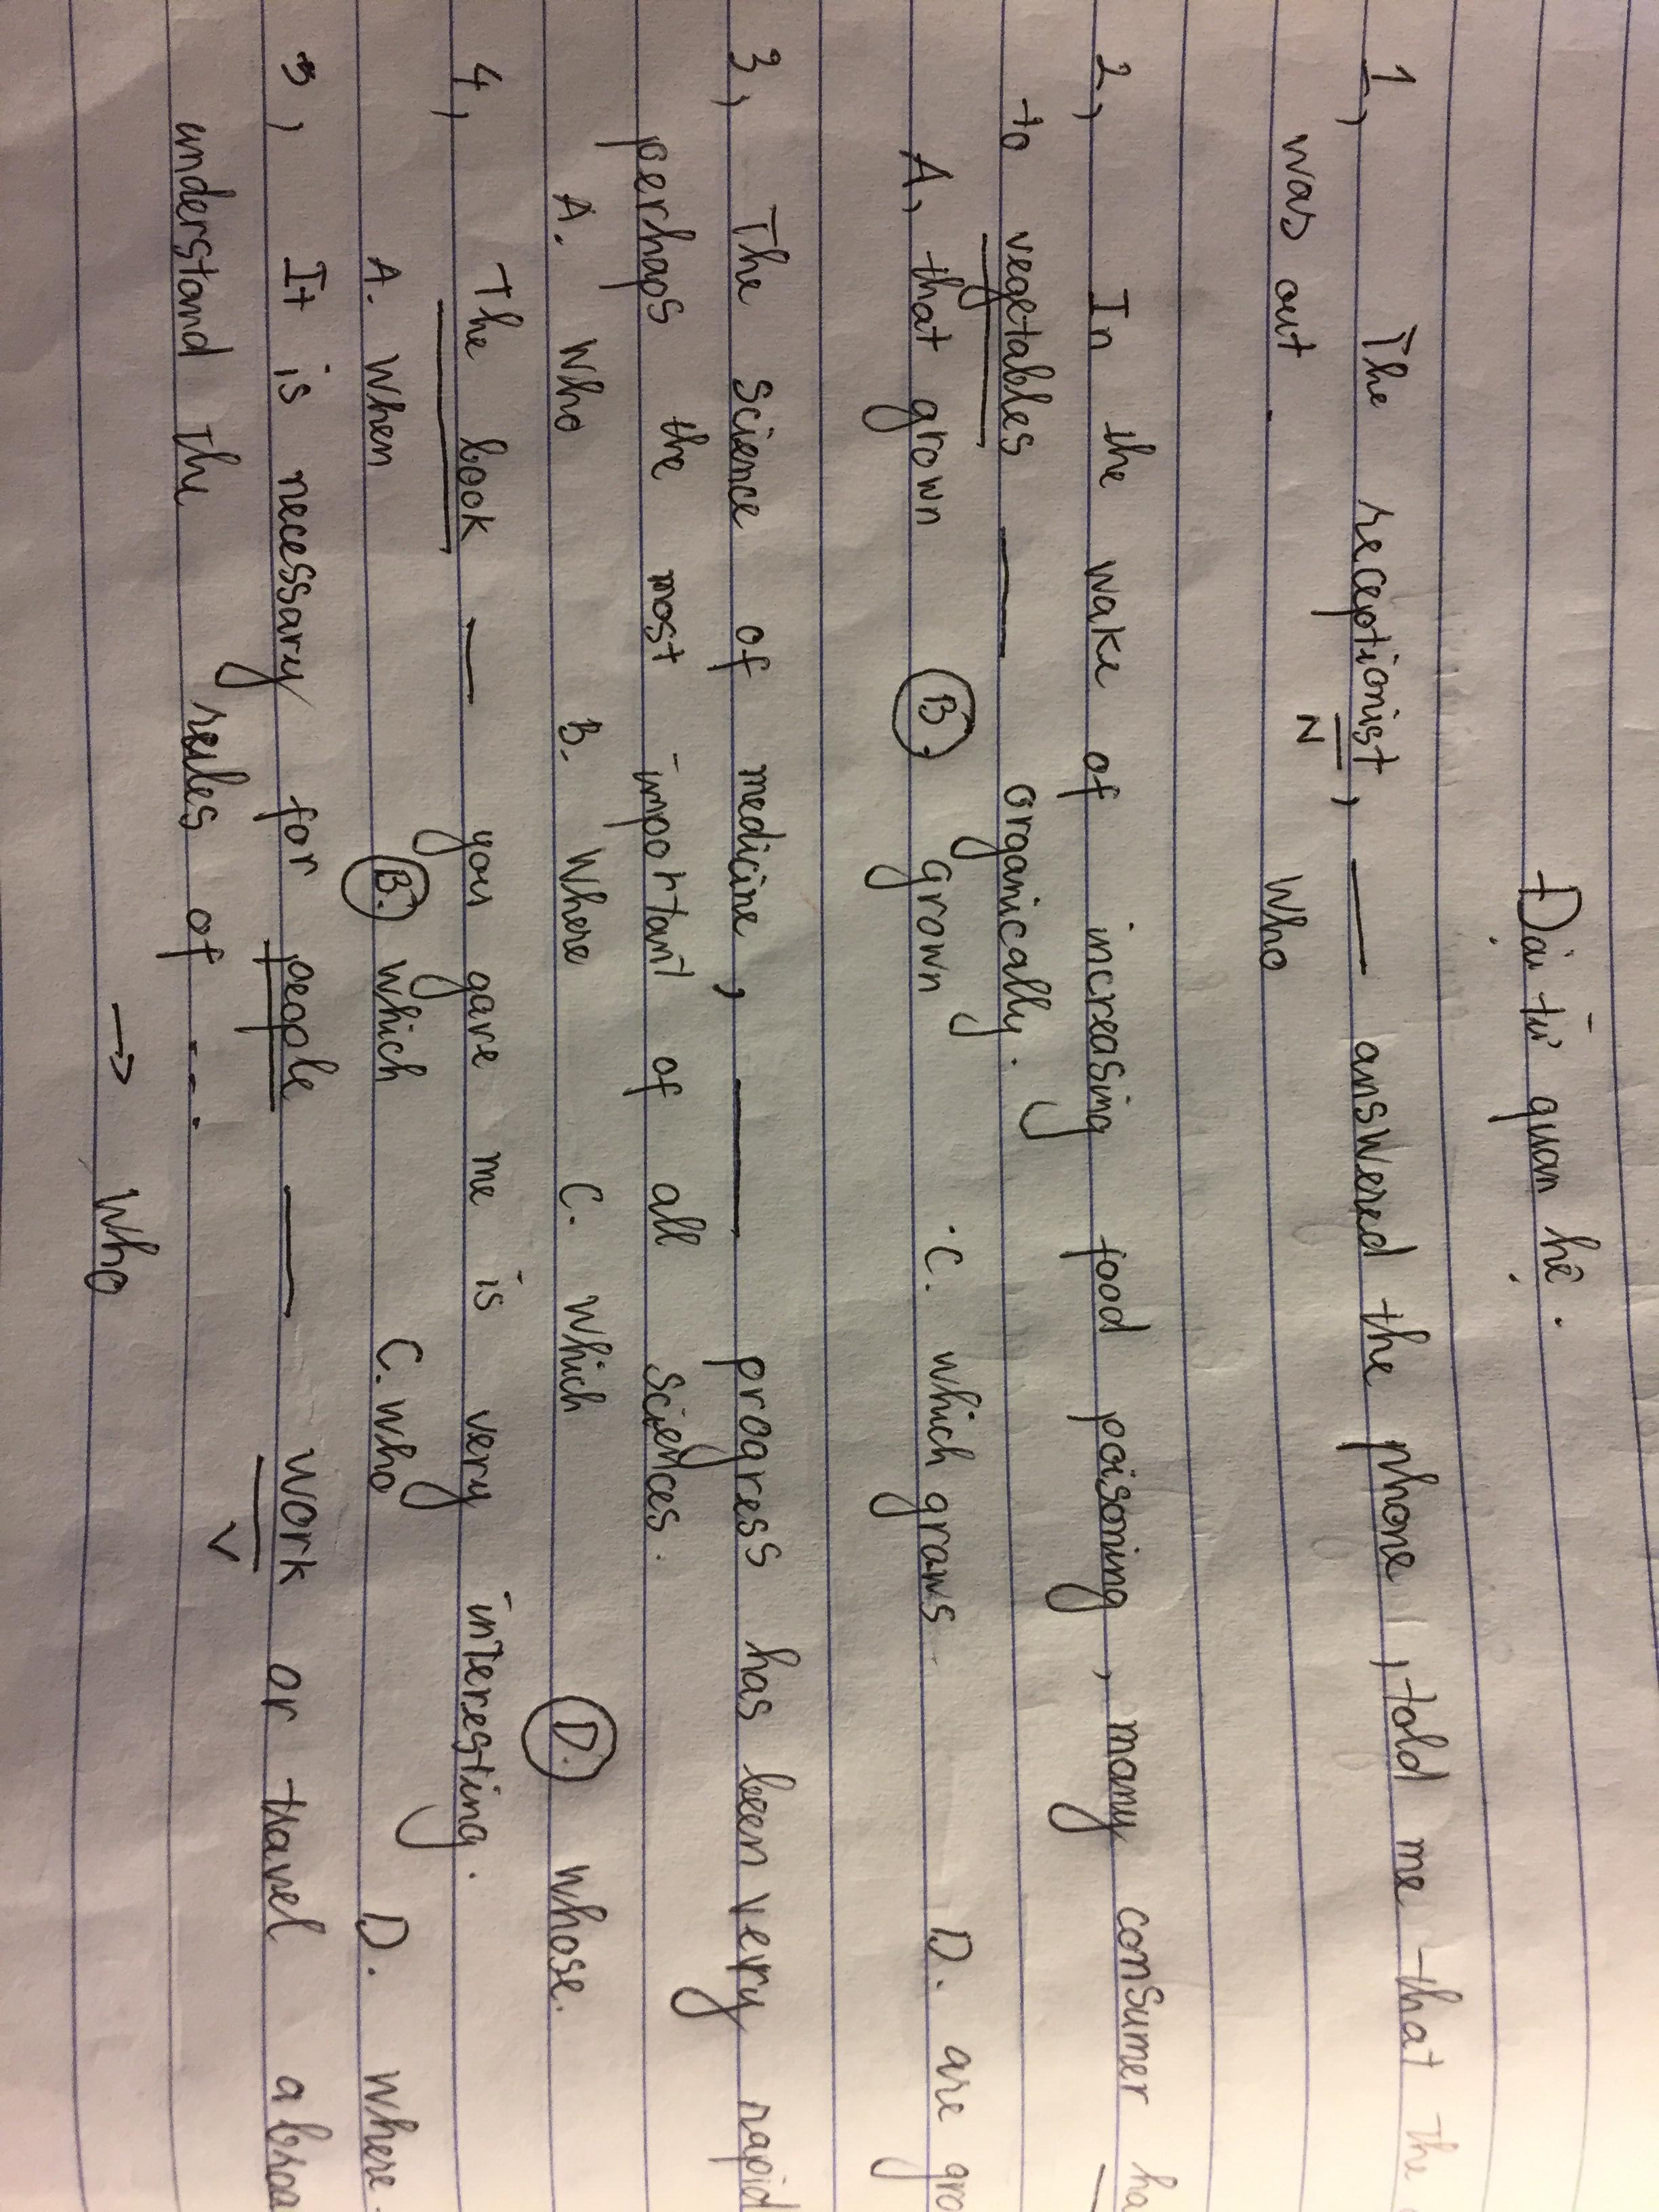 Đại từ quan hệ.
1, The receptionist, ___ answered the phone, told me that the
N
was out. Who
2, In the wake of increasing food poisoning, many consumer
to vegetables ___ organically.
A, that grown B. grown C. which grows D. are
3, The science of medicine, ___ progress has been very rapid
perhaps the most important of all sciences.
A. Who B. Where C. Which D. whose.
4, The book ___ you gave me is very interesting.
A. When B. which C. who D. where.
5, It is necessary for people ___ work or travel
V
understand the rules of ....
→ Who